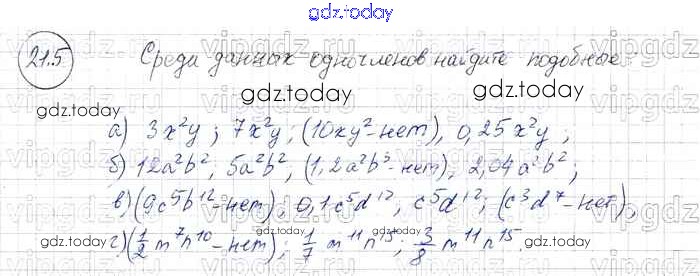 gdz.today
21.5 Среди данных одночленов найдите подобные.
gdz.today gdz.today
а) 3x²y ; 7x²y ; (10xy² - нет), 0,25x²y ;
б) 12a²b², 5a²b², (1,2a²b³ - нет), 2,04a²b² ;
в) (9c⁵b¹² - нет), 0,1c⁵d¹², c⁵d¹² ; (c³d⁷ - нет),
gdz.today gdz.today
г) (1/2 m⁷n¹⁰ - нет) ; 1/7 m¹¹n¹⁵ ; 3/8 m¹¹n¹⁵.
gdz.today gdz.today